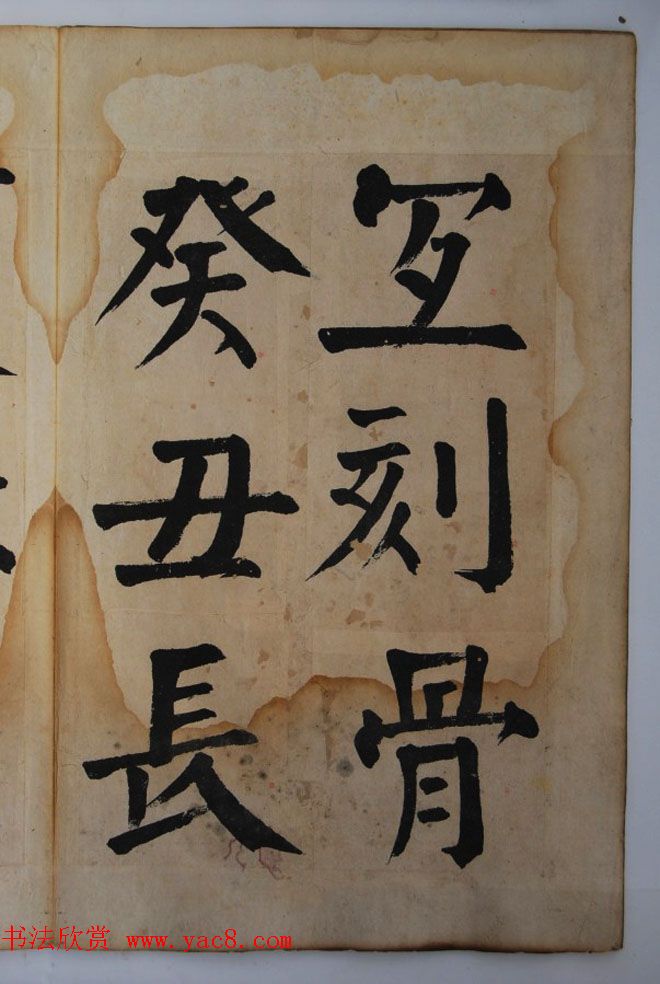 宜刻骨
癸丑長
书法欣赏 www.yac8.com